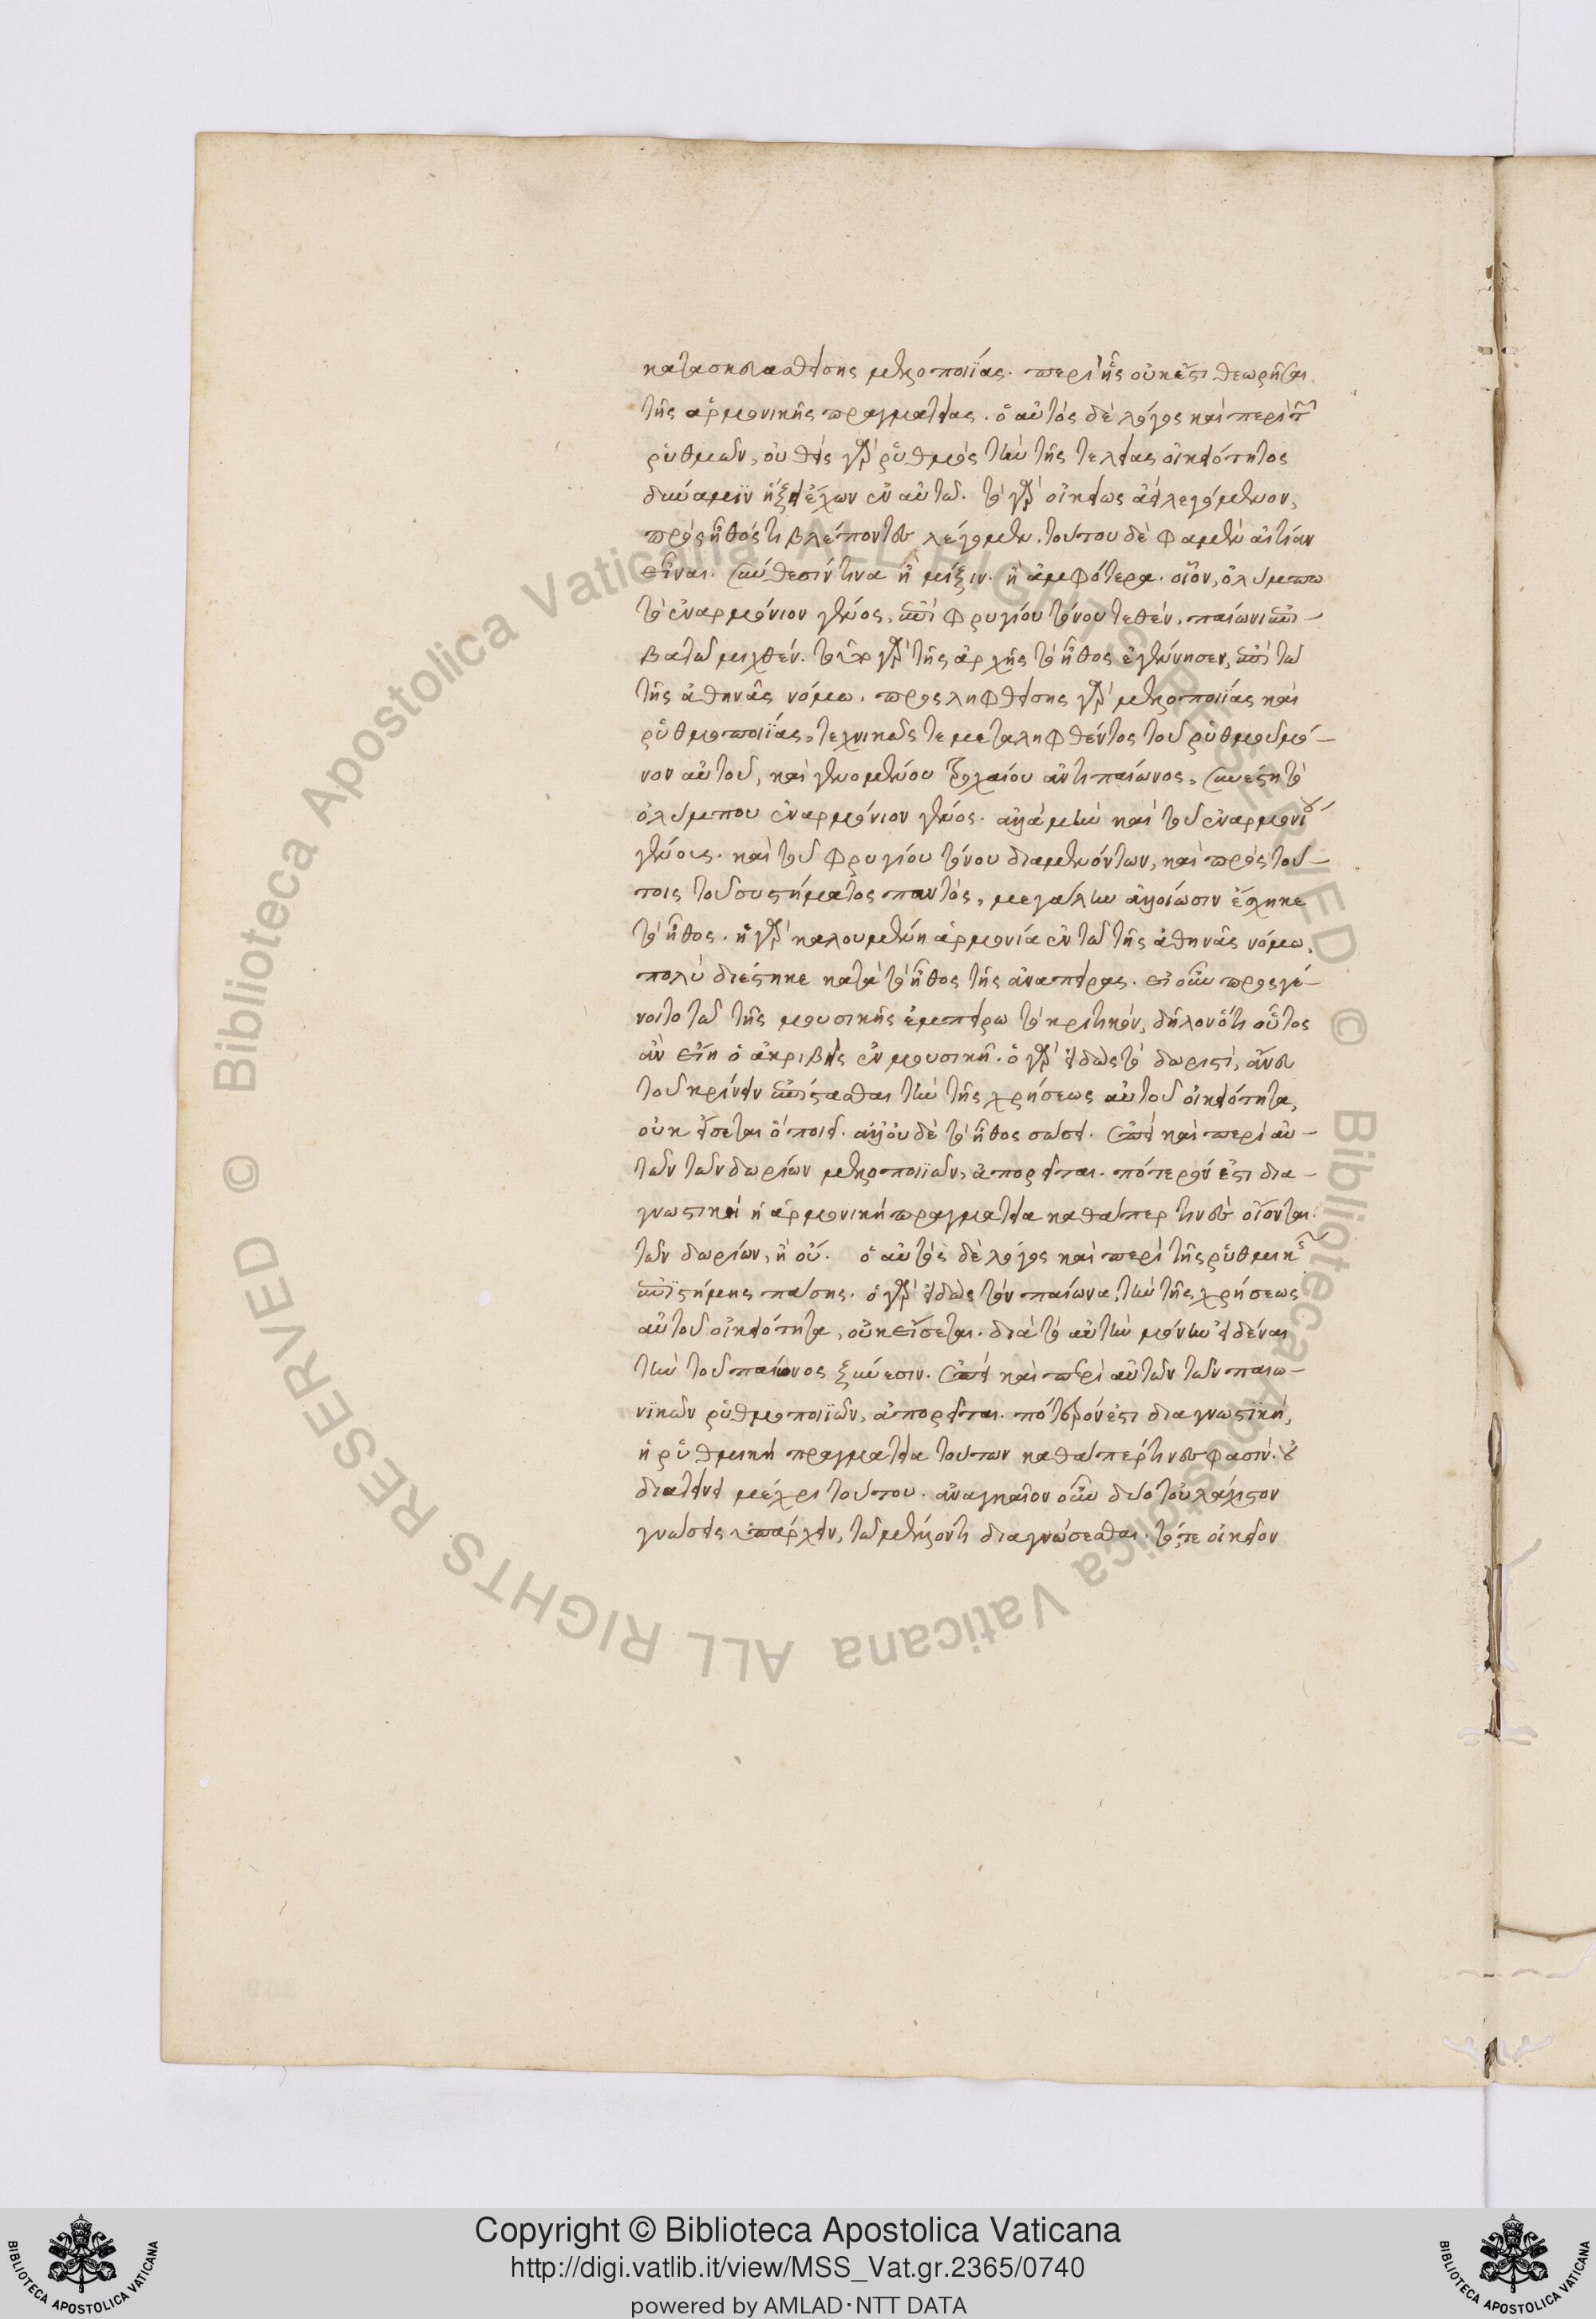 κατασκευασθείσης μελοποιΐας. περὶ ἧς οὐκέτι θεωρῆσαι
τῆς ἁρμονικῆς πραγματείας. ὁ αὐτὸς δὲ λόγος καὶ περὶ τῶν
ῥυθμῶν, οὐθεὶς γὰρ ῥυθμὸς τὴν τῆς τελείας οἰκειότητος
δύναμιν ἥξει ἔχων ἐν αὐτῶ. τὸ γὰρ οἰκείως ἀεὶ λεγόμενον,
πρὸς ἦθός τι βλέποντες λέγομεν. τούτου δὲ φαμὲν αἰτίαν
εἶναι. σύνθεσίν τινα ἢ μίξιν. ἢ ἀμφότερα. οἷον, ὀλύμπω
τὸ ἐναρμόνιον γένος, ἐπὶ φρυγίου τόνου τεθέν, παίωνι ἐπι-
βατῶ μιχθέν. τοῦτο γὰρ τῆς ἀρχῆς τὸ ἦθος ἐγέννησεν, ἐπὶ τῶ
τῆς ἀθηνᾶς νόμω. προσληφθείσης γὰρ μελοποιΐας καὶ
ῥυθμοποιΐας, τεχνικῶς τε μεταληφθέντος τοῦ ῥυθμοῦ μό-
νον αὐτοῦ, καὶ γενομένου τροχαίου ἀντὶ παίωνος, συνέστη τὸ
ὀλύμπου ἐναρμόνιον γένος. ἀλλὰ μὴν καὶ τοῦ ἐναρμονίου
γένους. καὶ τοῦ φρυγίου τόνου διαμενόντων, καὶ πρὸς τού-
τοις τοῦ συστήματος παντὸς, μεγάλην ἀλλοίωσιν ἔσχηκε
τὸ ἦθος. ἡ γὰρ καλουμένη ἁρμονία ἐν τῶ τῆς ἀθηνᾶς νόμω,
πολὺ διέστηκε κατὰ τὸ ἦθος τῆς ἀναπείρας. εἰ οὖν προσγέ-
νοιτο τῶ τῆς μουσικῆς ἐμπείρω τὸ κριτικόν, δηλονότι οὗτος
ἂν εἴη ὁ ἀκριβὴς ἐν μουσικῆ. ὁ γὰρ εἰδὼς τὸ δωριστὶ, ἄνευ
τοῦ κρίνειν ἐπίστασθαι τὴν τῆς χρήσεως αὐτοῦ οἰκειότητα,
οὐκ εἴσεται ὃ ποιεῖ. ἀλλ' οὐδὲ τὸ ἦθος σώσει. ἐπεὶ καὶ περὶ αὐ-
τῶν τῶν δωρίων μελοποιϊῶν, ἀπορεῖται. πότερόν ἐστι δια-
γνωστικὴ ἡ ἁρμονικὴ πραγματεία καθάπερ τινὲς οἴονται
τῶν δωρίων, ἢ οὔ. ὁ αὐτὸς δὲ λόγος καὶ περὶ τῆς ῥυθμικῆς
ἐπιστήμης πάσης. ὁ γὰρ εἰδὼς τὸν παίωνα, τὴν τῆς χρήσεως
αὐτοῦ οἰκειότητα, οὐκ εἴσεται. διὰ τὸ αὐτὴν μόνην εἰδέναι
τὴν τοῦ παίωνος ξύνεσιν. ἐπεὶ καὶ περὶ αὐτῶν τῶν παιω-
νϊκῶν ῥυθμοποιϊῶν, ἀπορεῖται. πότερόν ἐστι διαγνωστϊκὴ,
ἡ ῥυθμικὴ πραγματεία τούτων καθάπέρ τινες φασίν. οὐ
διατείνει μέχρι τούτου. ἀναγκαῖον οὖν δύο τοὐλάχιστον
γνώσεις ὑπάρχειν, τῶ μέλλοντι διαγνώσεσθαι. τό, τε οἰκεῖον